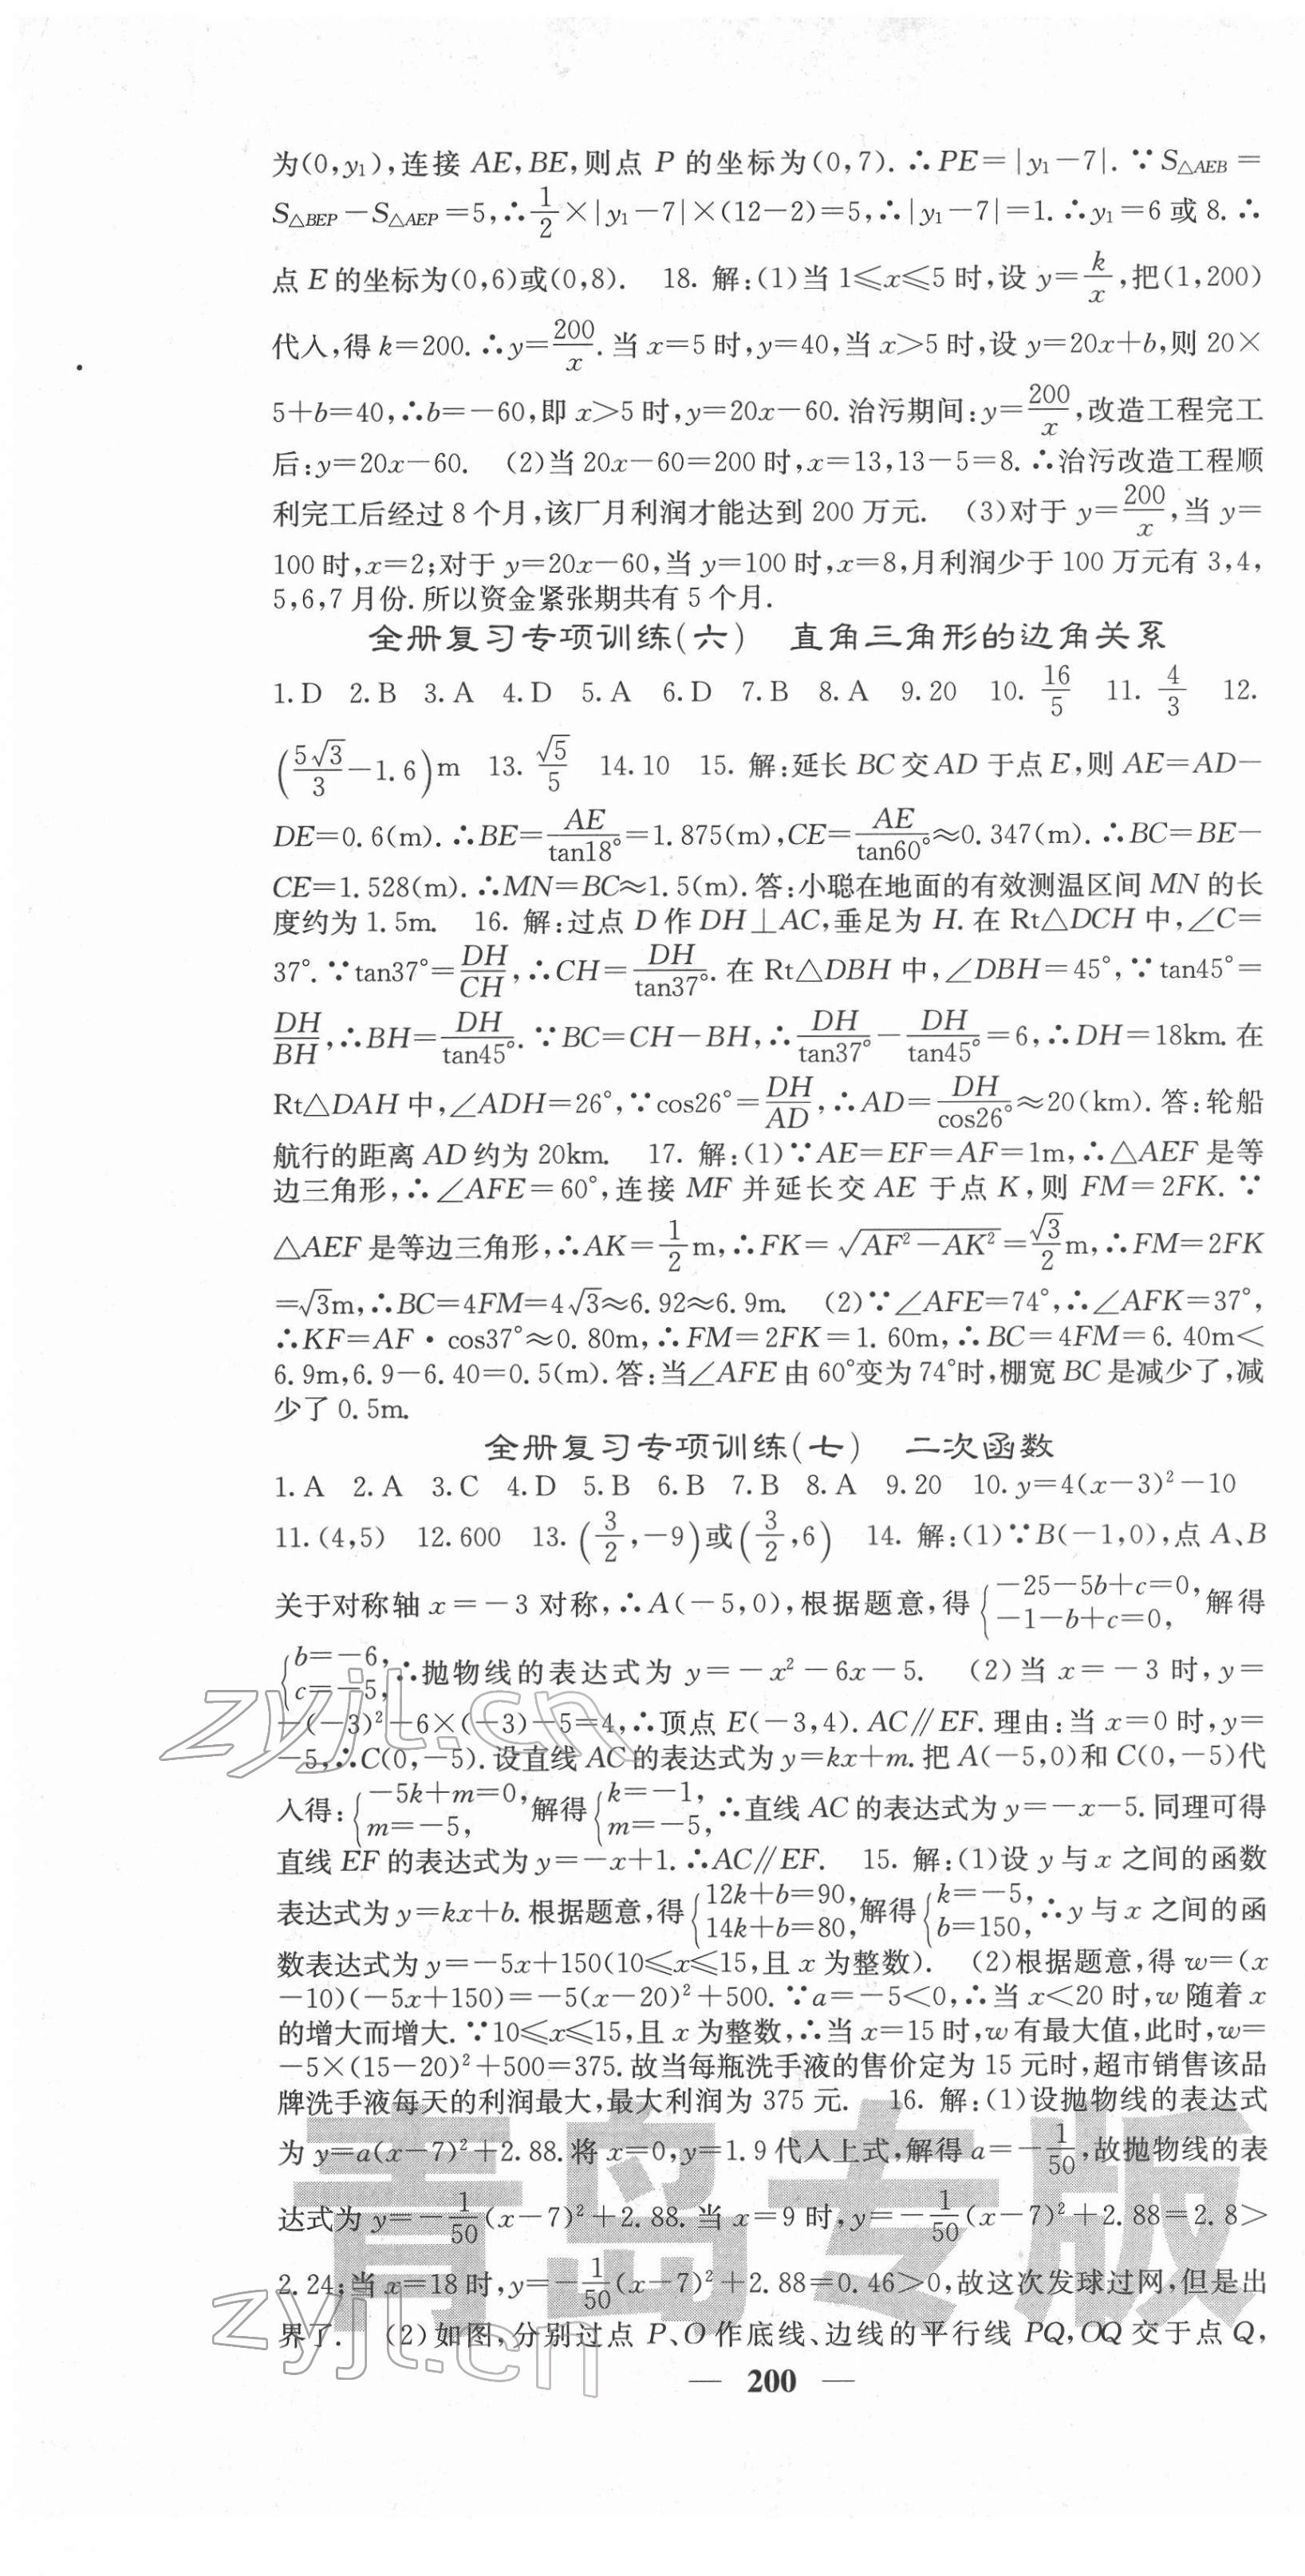 为(0,y₁),连接 AE,BE,则点 P 的坐标为(0,7).∴PE=|y₁-7|.∵S△AEB=
S△BEP-S△AEP=5,∴1/2×|y₁-7|×(12-2)=5,∴|y₁-7|=1.∴y₁=6或8.∴
点E的坐标为(0,6)或(0,8). 18. 解:(1)当1≤x≤5时,设 y=k/x,把(1,200)
代入,得k=200.∴y=200/x.当x=5时,y=40,当x>5时,设y=20x+b,则20×
5+b=40,∴b=-60,即x>5时,y=20x-60.治污期间:y=200/x,改造工程完工
后:y=20x-60. (2)当20x-60=200时,x=13,13-5=8.∴治污改造工程顺
利完工后经过8个月,该厂月利润才能达到200万元. (3)对于y=200/x,当y=
100时,x=2;对于y=20x-60,当y=100时,x=8,月利润少于100万元有3,4,
5,6,7月份.所以资金紧张期共有5个月.
全册复习专项训练(六) 直角三角形的边角关系
1.D 2.B 3.A 4.D 5.A 6.D 7.B 8.A 9.20 10. 16/5 11. 4/3 12.
(5√3/3-1.6)m 13. √5/5 14.10 15. 解:延长BC交AD于点E,则AE=AD-
DE=0.6(m).∴BE=AE/tan18°=1.875(m),CE=AE/tan60°≈0.347(m).∴BC=BE-
CE=1.528(m).∴MN=BC≈1.5(m).答:小聪在地面的有效测温区间MN的长
度约为1.5m. 16. 解:过点D作DH⊥AC,垂足为H.在Rt△DCH中,∠C=
37°.∵tan37°=DH/CH,∴CH=DH/tan37°.在Rt△DBH中,∠DBH=45°,∵tan45°=
DH/BH,∴BH=DH/tan45°.∵BC=CH-BH,∴DH/tan37°-DH/tan45°=6,∴DH=18km.在
Rt△DAH中,∠ADH=26°,∵cos26°=DH/AD,∴AD=DH/cos26°≈20(km).答:轮船
航行的距离AD约为20km. 17. 解:(1)∵AE=EF=AF=1m,∴△AEF是等
边三角形,∴∠AFE=60°,连接MF并延长交AE于点K,则FM=2FK.∵
△AEF是等边三角形,∴AK=1/2m,∴FK=√(AF²-AK²)=√3/2m,∴FM=2FK
=√3m,∴BC=4FM=4√3≈6.92≈6.9m. (2)∵∠AFE=74°,∴∠AFK=37°,
∴KF=AF·cos37°≈0.80m,∴FM=2FK=1.60m,∴BC=4FM=6.40m<
6.9m,6.9-6.40=0.5(m).答:当∠AFE由60°变为74°时,棚宽BC是减少了,减
少了0.5m.
全册复习专项训练(七) 二次函数
1.A 2.A 3.C 4.D 5.B 6.B 7.B 8.A 9.20 10.y=4(x-3)²-10
11.(4,5) 12.600 13.(3/2,-9)或(3/2,6) 14. 解:(1)∵B(-1,0),点A、B
关于对称轴x=-3对称,∴A(-5,0),根据题意,得{-25-5b+c=0,-1-b+c=0,解得
{b=-6,c=-5,∴抛物线的表达式为y=-x²-6x-5. (2)当x=-3时,y=
-(-3)²-6×(-3)-5=4,∴顶点E(-3,4).AC∥EF.理由:当x=0时,y=
-5,∴C(0,-5).设直线AC的表达式为y=kx+m.把A(-5,0)和C(0,-5)代
入得:{-5k+m=0,m=-5,解得{k=-1,m=-5,∴直线AC的表达式为y=-x-5.同理可得
直线EF的表达式为y=-x+1.∴AC∥EF. 15. 解:(1)设y与x之间的函数
表达式为y=kx+b.根据题意,得{12k+b=90,14k+b=80,解得{k=-5,b=150,∴y与x之间的函
数表达式为y=-5x+150(10≤x≤15,且x为整数). (2)根据题意,得w=(x
-10)(-5x+150)=-5(x-20)²+500.∵a=-5<0,∴当x<20时,w随着x
的增大而增大.∵10≤x≤15,且x为整数,∴当x=15时,w有最大值,此时,w=
-5×(15-20)²+500=375.故当每瓶洗手液的售价定为15元时,超市销售该品
牌洗手液每天的利润最大,最大利润为375元. 16. 解:(1)设抛物线的表达式
为y=a(x-7)²+2.88.将x=0,y=1.9代入上式,解得a=-1/50,故抛物线的表
达式为y=-1/50(x-7)²+2.88.当x=9时,y=-1/50(x-7)²+2.88=2.8>
2.24;当x=18时,y=-1/50(x-7)²+2.88=0.46>0,故这次发球过网,但是出
界了. (2)如图,分别过点P、O作底线、边线的平行线PQ,OQ交于点Q,
— 200 —
zyjl.cn
青岛专版
zyjl.cn